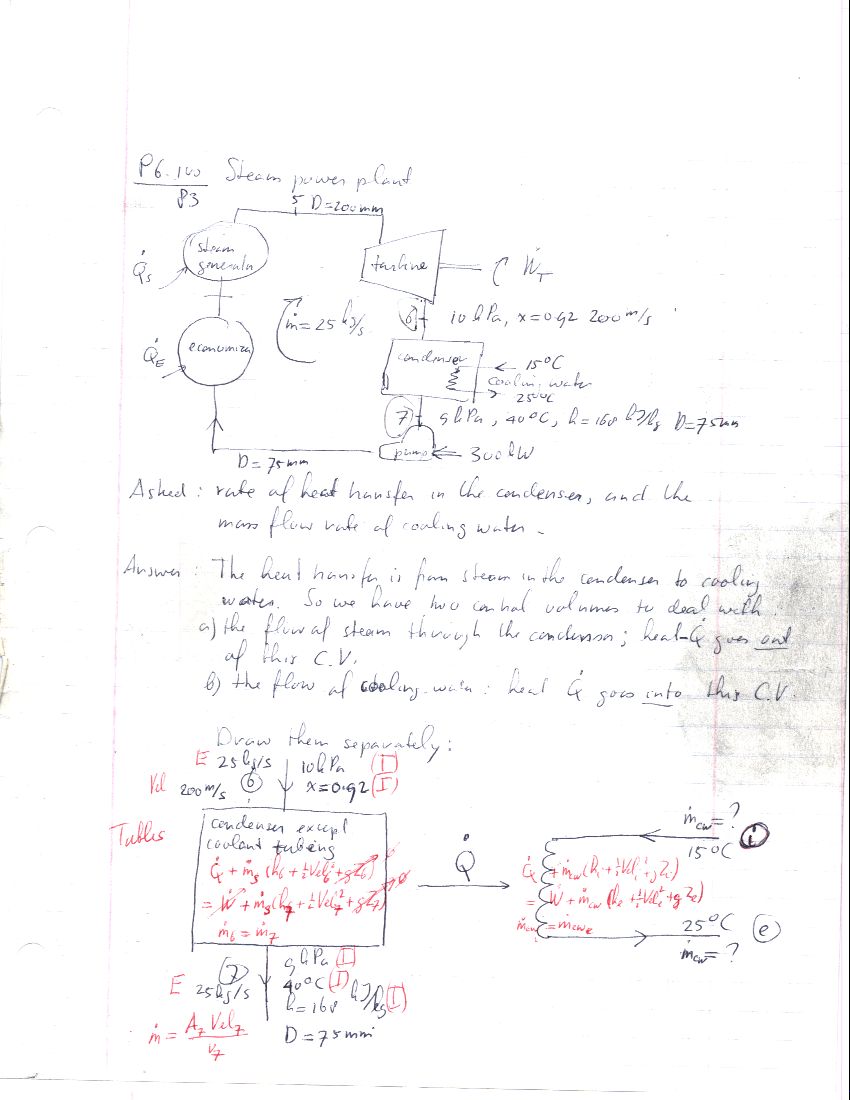 P6.100 Steam power plant
83
5 D=200mm
steam generator
Q̇s
turbine
ẆT
ṁ=25 kg/s
6 10 kPa, x=0.92 200 m/s
economizer
Q̇E
condenser
15°C
cooling water
25°C
7 9 kPa, 40°C, h=168 kJ/kg D=75mm
pump 300 kW
D=75mm
Asked: rate of heat transfer in the condenser, and the
mass flow rate of cooling water.
Answer: The heat transfer is from steam in the condenser to cooling
water. So we have two control volumes to deal with.
a) the flow of steam through the condensor; heat Q̇ goes out
of this C.V.
b) the flow of cooling water: heat Q̇ goes into this C.V.
Draw them separately:
E 25 kg/s 10 kPa (I)
Vel 200 m/s 6 x=0.92 (I)
Tables
condenser except
coolant tubing
Q̇ + ṁ₆(h₆+½Vel₆²+gZ₆)
= Ẇ + ṁ₇(h₇+½Vel₇²+gZ₇)
ṁ₆=ṁ₇
Q̇
ṁcw=?
15°C i
Q̇ + ṁcw(hi+½Veli²+gZi)
= Ẇ + ṁcw(he+½Vele²+gZe)
ṁcwi=ṁcwe
25°C e
ṁcw=?
7 9 kPa (I)
E 25 kg/s 40°C (I)
h=168 kJ/kg (I)
ṁ = A₇Vel₇/v₇ D=75mm